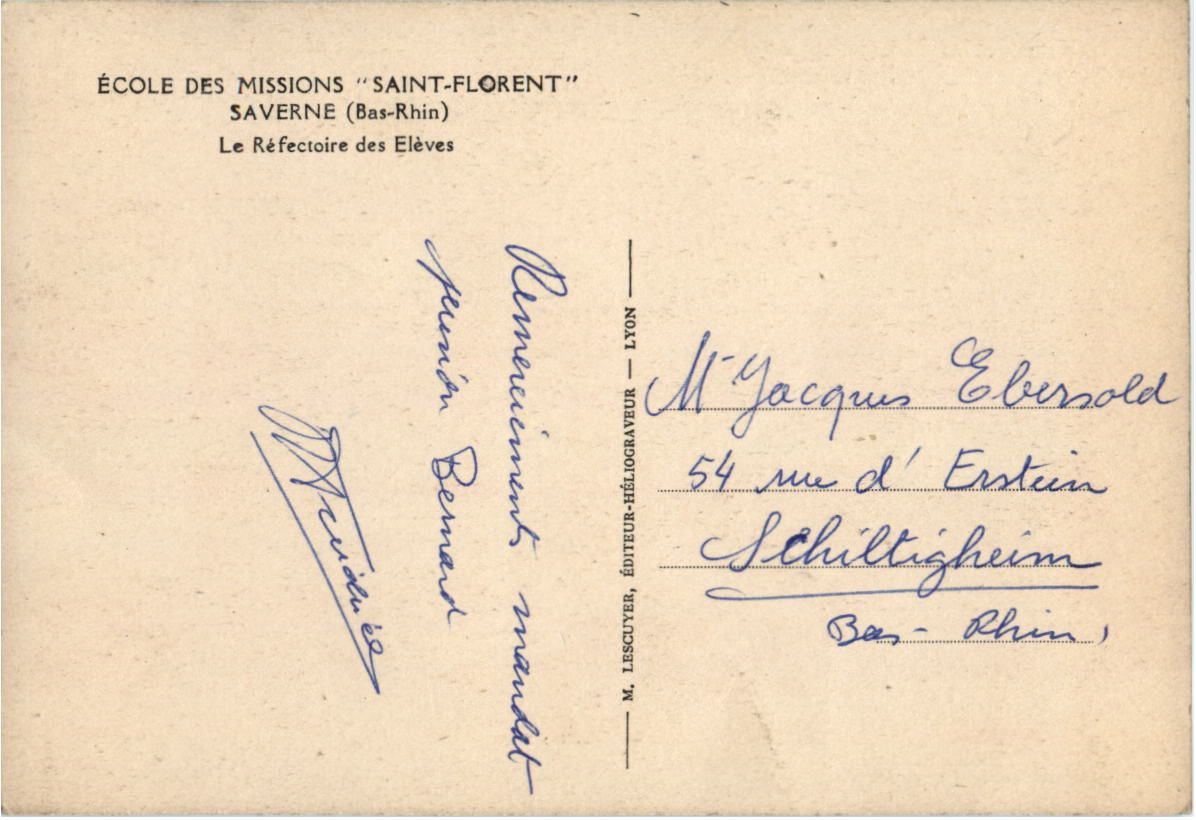 ÉCOLE DES MISSIONS "SAINT-FLORENT"
SAVERNE (Bas-Rhin)
Le Réfectoire des Elèves
Remerciements mandat
pension Bernard
M. LESCUYER, ÉDITEUR-HÉLIOGRAVEUR — LYON
Mr Jacques Ebersold
54 rue d'Erstein
Schiltigheim
Bas-Rhin